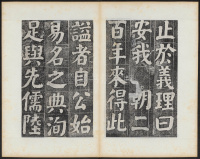 止於義理曰
安我 朝二
百年來得此
謚者自公始
易名之典洵
足與先儒陸